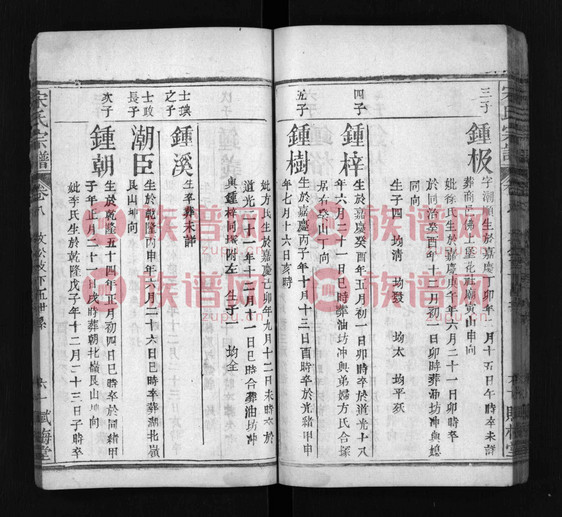 三子
鍾极
字潮順生於嘉慶丁卯年 月十五日午時卒未詳
葬商邑佛土堡花社廟寅山申向
妣徐氏生於嘉慶庚午年六月二十一日卯時卒
於同治癸酉年十二月初一日卯時葬 坊冲與
同向
生子四 均清 均發 均太 均平殀
四子
鍾梓
生於嘉慶癸酉年五月初一日卯時卒於道光十八
年六月二十一日巳時葬油坊冲與弟婦方氏合塚
居右癸山 向
五子
鍾樹
生於嘉慶 子年十月十三日酉時卒於光緒甲申
年七月十六日亥時
妣方氏生於嘉慶己卯年九月十二日未時卒於
道光二十一年十二月十一日巳時合葬油坊冲
與鍾梓同塚附左 生子一 均全
士璜
之子
鍾溪
生卒葬未詳
士政
長子
潮臣
生於乾隆丙申年六月二十六日巳時卒葬湖北嶺
艮山坤向
次子
鍾朝
生於乾隆五十四年正月初四日巳時卒於同緒甲
子年正月二十二日戌時葬朝北嶺艮山坤向
妣李氏生於乾隆戊子年十二月二十三日子時卒
宋氏宗譜
卷八
六十一
賦梅堂
族谱网
zupu.cn